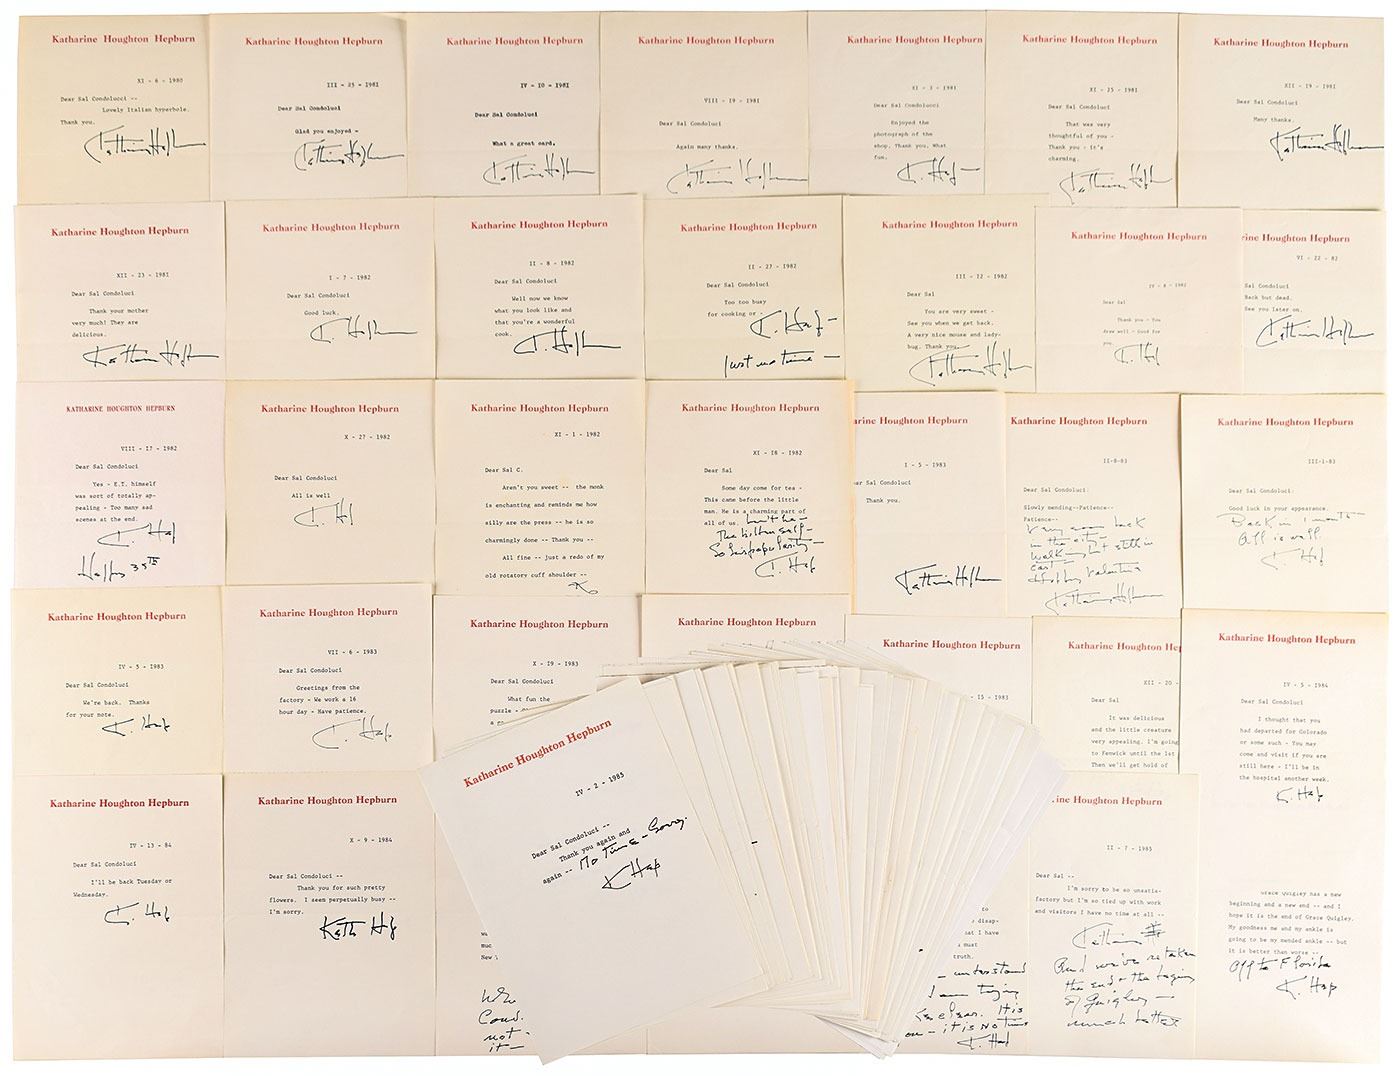 Katharine Houghton Hepburn
XI - 6 - 1980
Dear Sal Condolucci --
Lovely Italian hyperbole.
Thank you.
Katharine Houghton Hepburn
III - 23 - 1981
Dear Sal Condoluci
Glad you enjoyed -
Katharine Houghton Hepburn
IV - 10 - 1981
Dear Sal Condoluci
What a great card.
Katharine Houghton Hepburn
VIII - 19 - 1981
Dear Sal Condoluci
Again many thanks.
Katharine Houghton Hepburn
XI - 3 - 1981
Dear Sal Condolucci
Enjoyed the
photograph of the
shop. Thank you. What
fun.
K. Hep
Katharine Houghton Hepburn
XI - 25 - 1981
Dear Sal Condoluci
That was very
thoughtful of you -
Thank you - it's
charming.
Katharine Houghton Hepburn
XII - 19 - 1981
Dear Sal Condoluci
Many thanks.
Katharine Houghton Hepburn
XII - 23 - 1981
Dear Sal Condoluci
Thank your mother
very much! They are
delicious.
Katharine Houghton Hepburn
I - 7 - 1982
Dear Sal Condoluci
Good luck.
Katharine Houghton Hepburn
II - 8 - 1982
Dear Sal Condoluci
Well now we know
what you look like and
that you're a wonderful
cook.
Katharine Houghton Hepburn
II - 27 - 1982
Dear Sal Condoluci
Too too busy
for cooking or -
K. Hep
Just no time -
Katharine Houghton Hepburn
III - 12 - 1982
Dear Sal
You are very sweet -
See you when we get back.
A very nice mouse and lady-
bug. Thank you.
Katharine Houghton Hepburn
IV - 8 - 1982
Dear Sal
Thank you - You
draw well - Good for
you.
K. Hep
rine Houghton Hepburn
VI - 22 - 82
Sal Condoluci
Back but dead.
See you later on.
KATHARINE HOUGHTON HEPBURN
VIII - 17 - 1982
Dear Sal Condoluci
Yes - E.T. himself
was sort of totally ap-
pealing - Too many sad
scenes at the end.
K. Hep
Happy 35th
Katharine Houghton Hepburn
X - 27 - 1982
Dear Sal Condoluci
All is well
K. Hep
Katharine Houghton Hepburn
XI - 1 - 1982
Dear Sal C.
Aren't you sweet -- the monk
is enchanting and reminds me how
silly are the press -- he is so
charmingly done -- Thank you --
All fine -- just a redo of my
old rotatory cuff shoulder --
Katharine Houghton Hepburn
XI - 18 - 1982
Dear Sal
Some day come for tea -
This came before the little
man. He is a charming part of
all of us.
K. Hep
rine Houghton Hepburn
I - 5 - 1983
ar Sal Condoluci
Thank you.
Katharine Houghton Hepburn
II-8-83
Dear Sal Condoluci:
Slowly mending--Patience--
Patience--
Very soon back
in the city -
walking but still in
cast -
Happy Valentine
Katharine Houghton Hepburn
III-1-83
Dear Sal Condoluci:
Good luck in your appearance.
Back in 1 month -
All is well.
K. Hep
Katharine Houghton Hepburn
IV - 5 - 1983
Dear Sal Condoluci
We're back. Thanks
for your note.
K. Hep
Katharine Houghton Hepburn
VII - 6 - 1983
Dear Sal Condoluci
Greetings from the
factory - We work a 16
hour day - Have patience.
K. Hep.
Katharine Houghton Hepburn
X - 19 - 1983
Dear Sal Condoluci
What fun the
puzzle -
Katharine Houghton Hepburn
Katharine Houghton Hepburn
- 15 - 1983
Katharine Houghton Hep
XII - 20 -
Dear Sal
It was delicious
and the little creature
very appealing. I'm going
to Fenwick until the 1st
Then we'll get hold of
Katharine Houghton Hepburn
IV - 5 - 1984
Dear Sal Condoluci
I thought that you
had departed for Colorado
or some such - You may
come and visit if you are
still here - I'll be in
the hospital another week.
K. Hep
Katharine Houghton Hepburn
IV - 13 - 84
Dear Sal Condoluci
I'll be back Tuesday or
Wednesday.
K. Hep
Katharine Houghton Hepburn
X - 9 - 1984
Dear Sal Condoluci --
Thank you for such pretty
flowers. I seem perpetually busy --
I'm sorry.
Kath Hep
Katharine Houghton Hepburn
IV - 2 - 1985
Dear Sal Condoluci --
Thank you again and
again -- No Time - Sorry.
K Hep
muc
New
Who
Cond.
not -
it -
to
disap-
at I have
must
truth.
- understand
I am trying
clear. It is
on - it is no time
K. Hep
ine Houghton Hepburn
II - 7 - 1985
Dear Sal --
I'm sorry to be so unsatis-
factory but I'm so tied up with work
and visitors I have no time at all --
And we've retaken
the end & the
of Quigley -
much better
Grace Quigley has a new
beginning and a new end -- and I
hope it is the end of Grace Quigley.
My goodness me and my ankle is
going to be my mended ankle -- but
it is better than worse --
Off to Florida
K. Hep